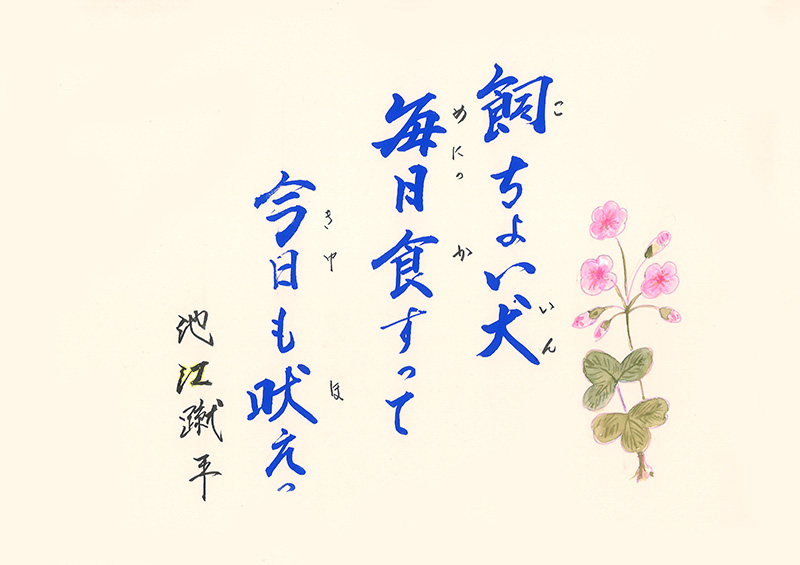 飼ちょい犬
こ いん
毎日食すって
めにっ か
今日も吠えっ
きゆ ほ
池江蹴平